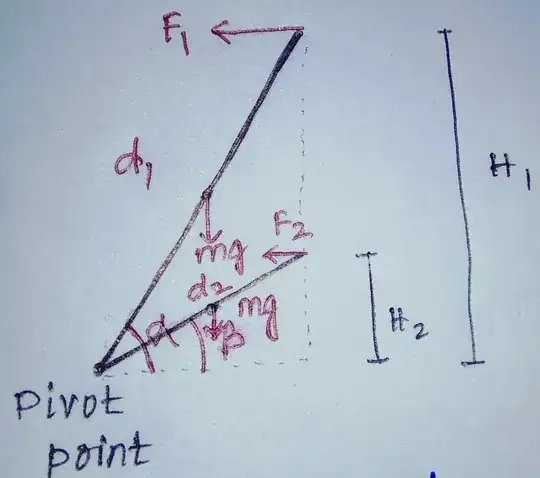 F1
H1
d1
mg
F2
d2
mg
α
β
H2
Pivot
point